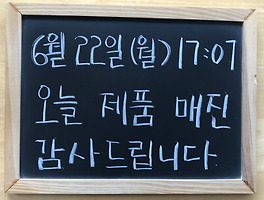 6월 22일(월) 17:07
오늘 제품 매진
감사드립니다.